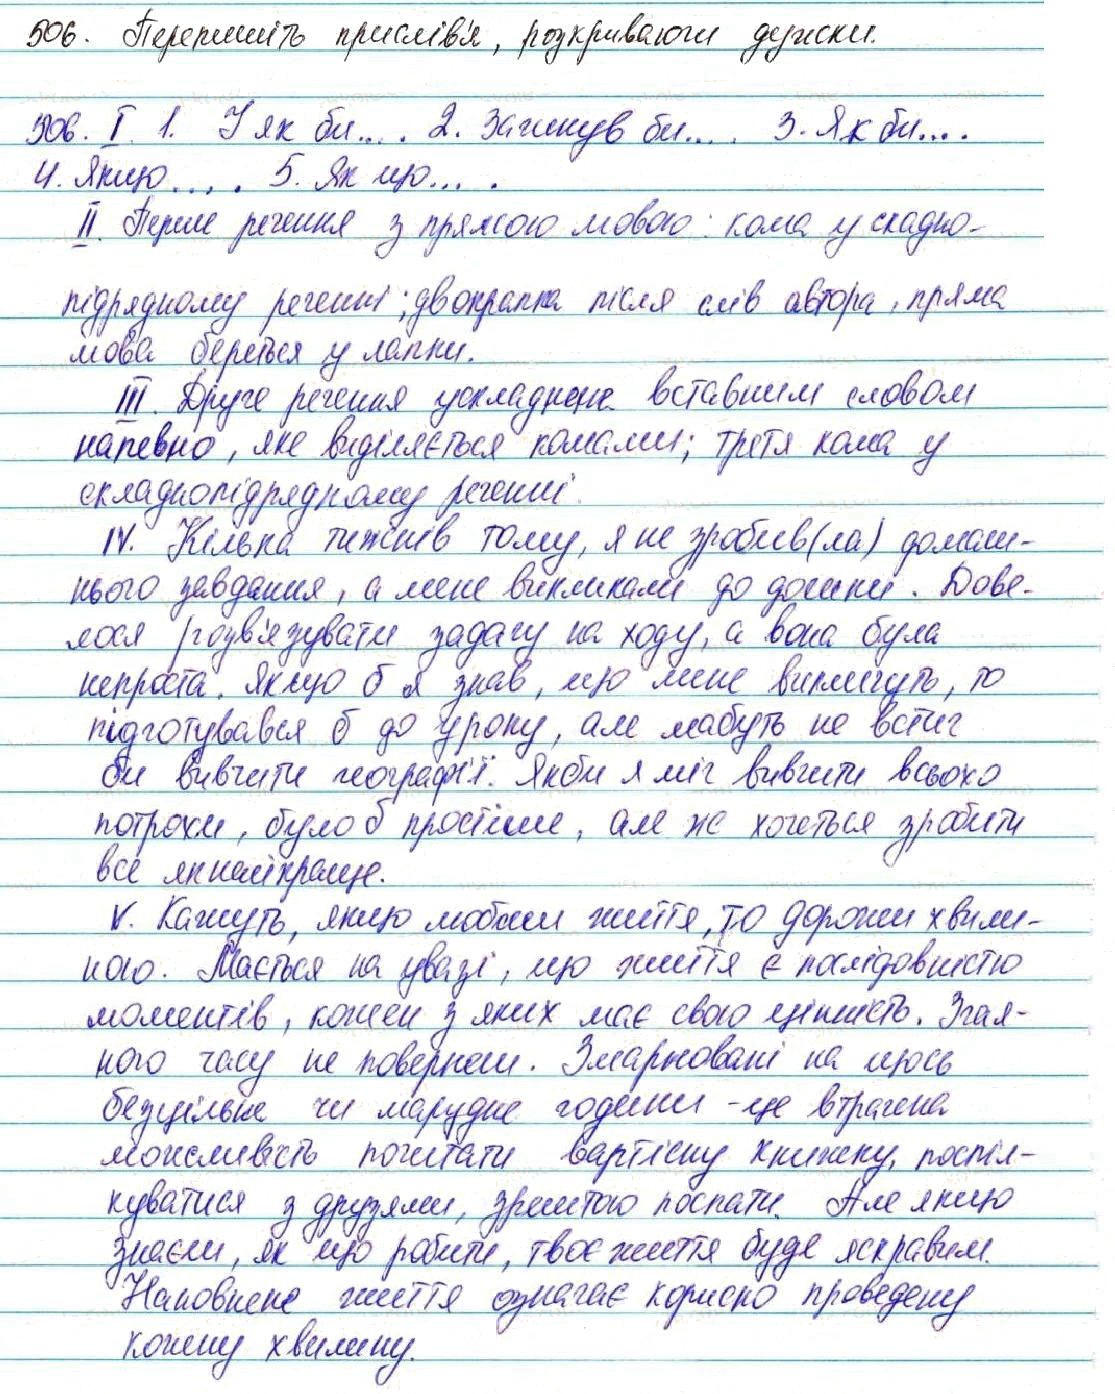 506. Перепишіть прислів'я, розкриваючи дужки.
506. I. 1. І як би.... 2. Загинув би.... 3. Як би....
4. Якщо.... 5. Як що....
II. Перше речення з прямою мовою: кома у складно-
підрядному реченні; двокрапка після слів автора, пряма
мова береться у лапки.
III. Друге речення ускладнене вставним словом
напевно, яке виділяється комами; третя кома у
складнопідрядному реченні.
IV. Кілька тижнів тому, я не зробив(ла) домаш-
нього завдання, а мене викликали до дошки. Дове-
лося розв'язувати задачу на ходу, а вона була
непроста. Якщо б я знав, що мене викличуть, то
підготувався б до уроку, але мабуть не встиг
би вивчити географії. Якби я міг вивчити всього
потрохи, було б простіше, але ж хочеться зробити
все якнайкраще.
V. Кажуть, якщо любиш життя, то дорожи хвили-
ною. Мається на увазі, що життя є послідовністю
моментів, кожен з яких має свою цінність. Згая-
ного часу не повернеш. Змарновані на щось
безцільне чи марудне години - це втрачена
можливість почитати вартісну книжку, поспіл-
куватися з друзями, зрештою поспати. Але якщо
знаєш, як що робити, твоє життя буде яскравим.
Наповнене життя означає корисно проведену
кожну хвилину.